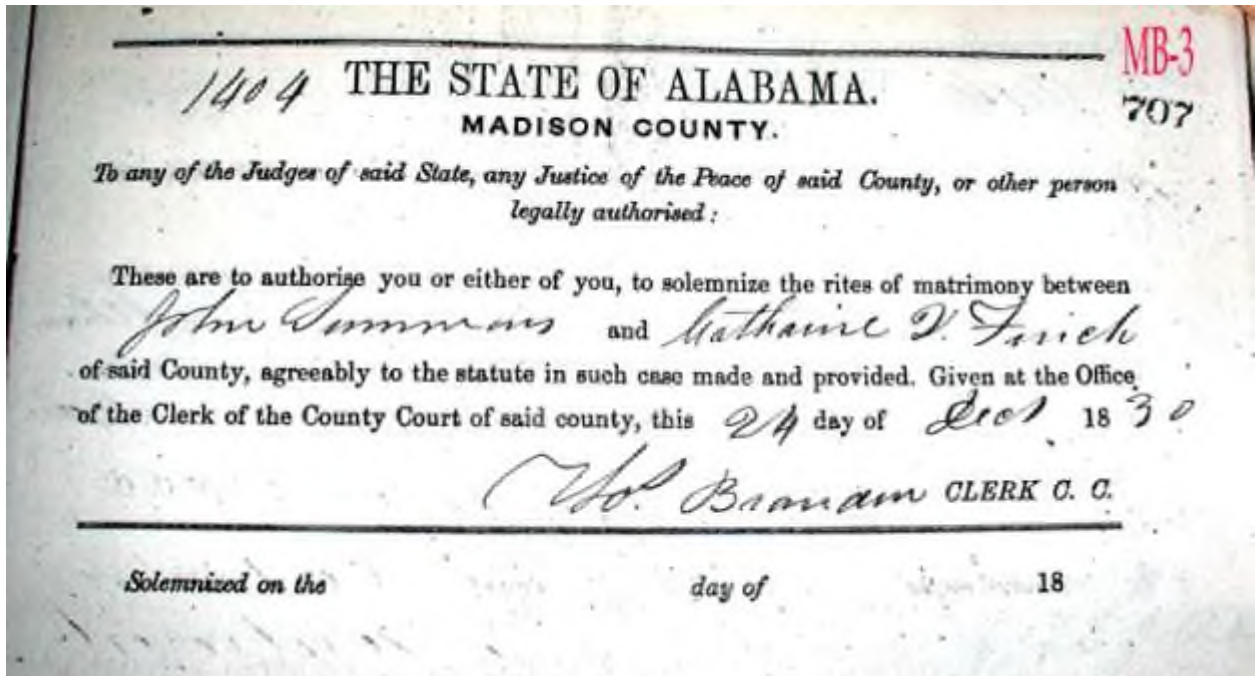 MB-3
1404 THE STATE OF ALABAMA.
707
MADISON COUNTY.
To any of the Judges of said State, any Justice of the Peace of said County, or other person
legally authorised:
These are to authorise you or either of you, to solemnize the rites of matrimony between
John Simmons and Catharine V. Finch
of said County, agreeably to the statute in such case made and provided. Given at the Office
of the Clerk of the County Court of said county, this 24 day of 18 30
Thos. Brandon CLERK C. C.
Solemnized on the day of 18